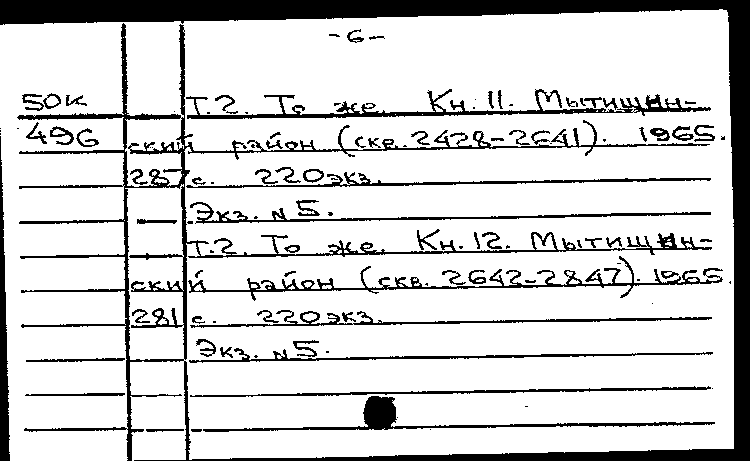 -6-
50к Т.2. То же. Кн. 11. Мытищин-
496 ский район (скв. 2428-2641). 1965.
287 с. 220 экз.
Экз. N 5.
Т.2. То же. Кн. 12. Мытищин-
ский район (скв. 2642-2847). 1965.
281 с. 220 экз.
Экз. N 5.